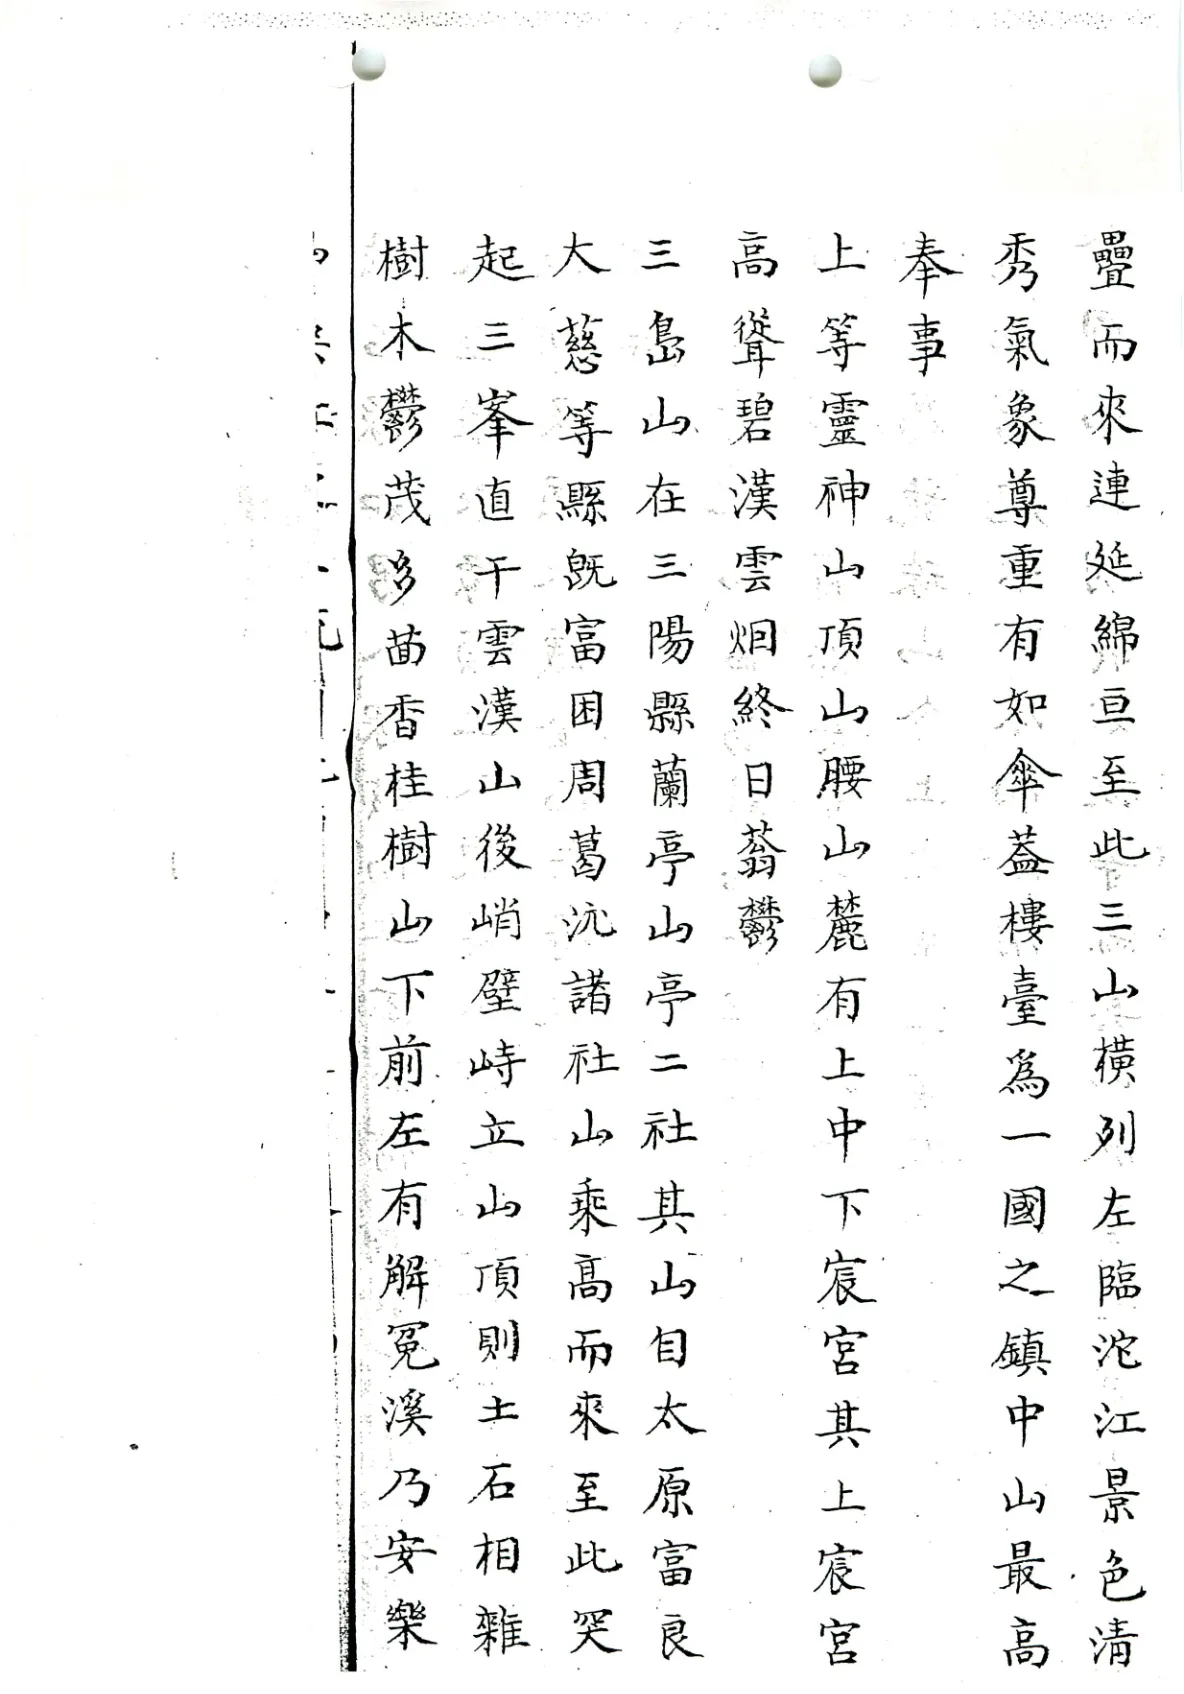 疊而來連延綿亘至此三山橫列左臨沱江景色清
秀氣象尊重有如傘蓋樓臺爲一國之鎮中山最高
奉事
上等靈神山頂山腰山麓有上中下宸宮其上宸宮
高聳碧漢雲烟終日蓊鬱
三島山在三陽縣蘭亭山亭二社其山自太原富良
大慈等縣既富困周葛沇諸社山乘高而來至此突
起三峯直干雲漢山後峭壁峙立山頂則土石相雜
樹木鬱茂多茴香桂樹山下前左有解冤溪乃安樂